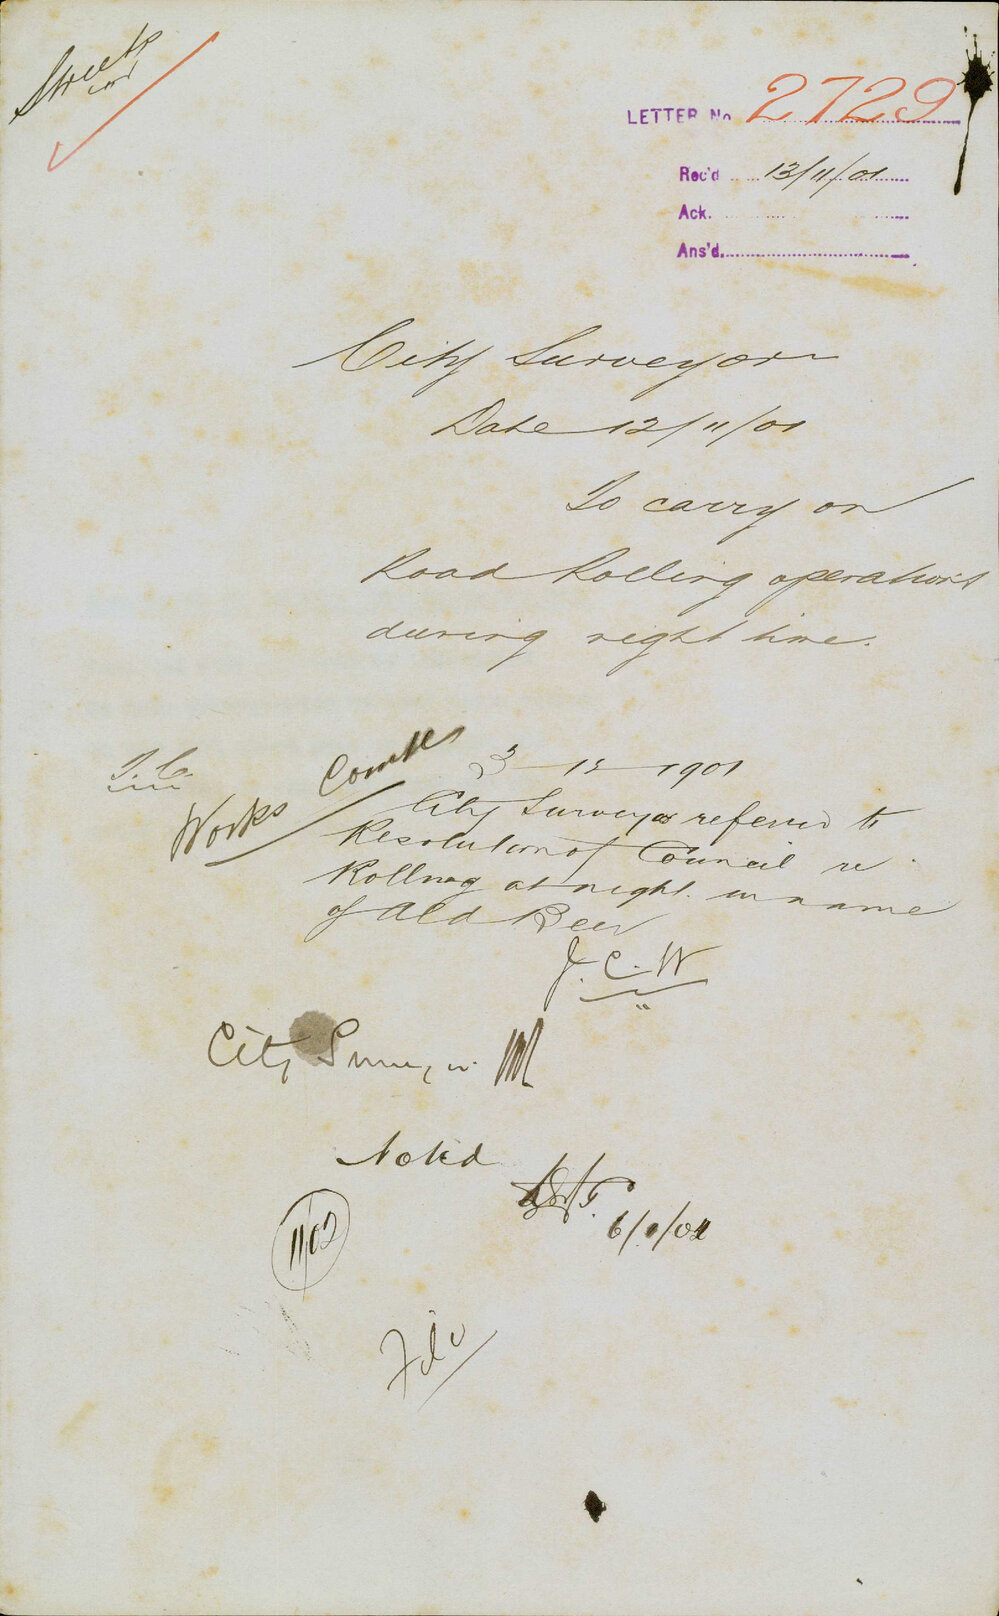 Streets
LETTER No 2729
Rec'd 13/11/01
Ack.
Ans'd.
City Surveyor
Date 12/11/01
To carry on
Road Rolling operations
during night time.
T.C.
Works Comtee
3 12 1901
City Surveyor referred to
Resolution of Council re
Rolling at night in name
of Ald Beer
J.C.W
City Surveyor
Noted
6/1/02
11/02
File